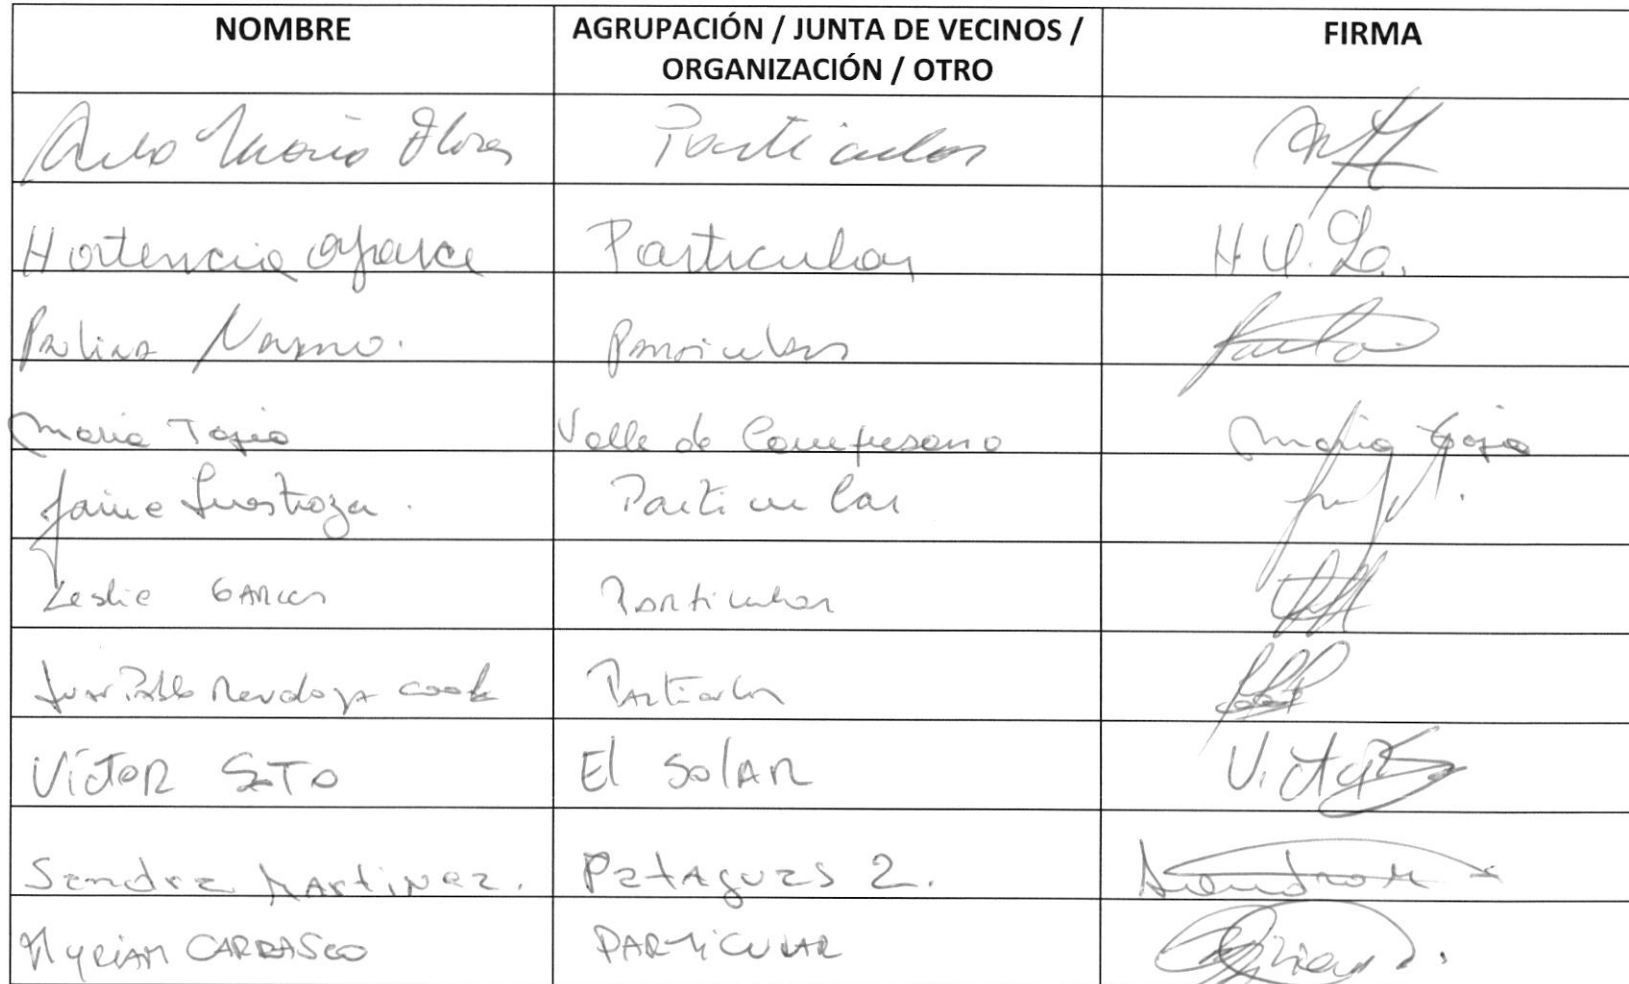 NOMBRE
AGRUPACIÓN / JUNTA DE VECINOS /
ORGANIZACIÓN / OTRO
FIRMA
María Flores Particular
Hortencia Particular H.
Paulina Particular
María Tapia Valle de Campesano María Tapia
Jaime Inostroza. Particular
Leslie GARCES Particular
Juan Pablo Mendoza Cook Particular
VíCTOR SOTO El SOLAR Victor
Sandra MARTINEZ. PATAGUAS 2. Sandra M
MYRIAM CARRASCO PARTICULAR